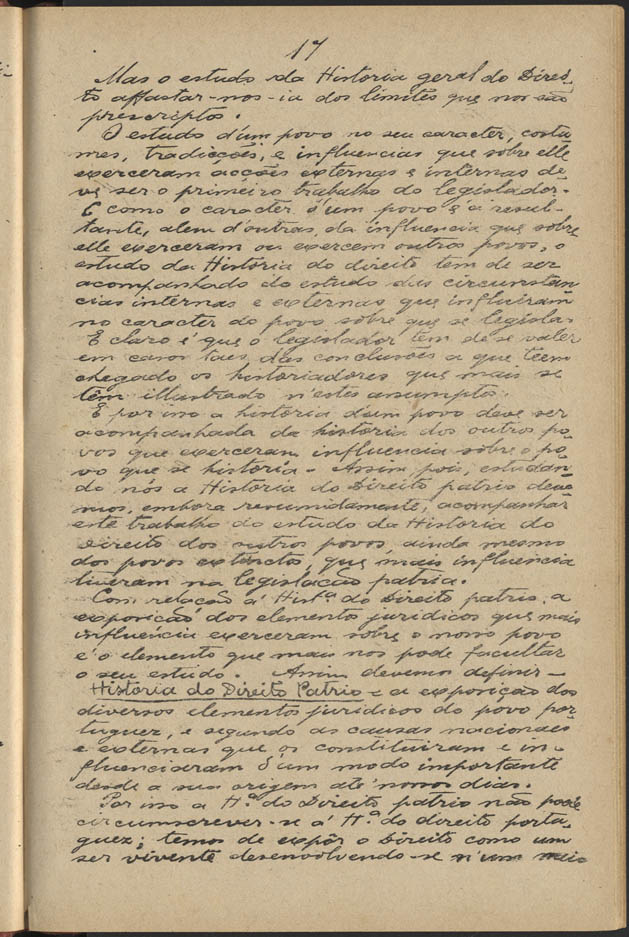 17
Mas o estudo da Historia geral do Direi-
to affastar-nos-ia dos limites que nos são
prescriptos.
O estudo d'um povo no seu caracter, costu-
mes, tradicções, e influencias que sobre elle
exerceram acções externas e internas de-
ve ser o primeiro trabalho do legislador.
E como o caracter d'um povo é a resul-
tante, alem d'outras, da influencia que sobre
elle exerceram ou exercem outros povos, o
estudo da Historia do direito tem de ser
acompanhado do estudo das circunstan-
cias internas e externas que influiram
no caracter do povo sobre que se legisla.
E claro é que o legislador tem de se valer
em casos taes, das conclusões a que teem
chegado os historiadores que mais se
têm illustrado n'estes assumptos.
E por isso a historia dum povo deve ser
acompanhada da historia dos outros po-
vos que exerceram influencia sobre o po-
vo que se historía. Assim pois, estudan-
do nós a Historia do Direito patrio deve-
mos, embora resumidamente, acompanhar
este trabalho do estudo da Historia do
Direito dos outros povos, ainda mesmo
dos povos extinctos, que mais influencia
tiveram na legislação patria.
Com relação á Hist.ª do Direito patrio, a
exposição dos elementos juridicos que mais
influencia exerceram sobre o nosso povo
é o elemento que mais nos pode facultar
o seu estudo. Assim devemos definir -
Historia do Direito Patrio - a exposição dos
diversos elementos juridicos do povo por-
tuguez, e segundo as causas nacionaes
e externas que os constituiram e in-
fluenciaram d'um modo importante
desde a sua origem até nossos dias.
Por isso a H.ª do Direito patrio não pode
circumscrever-se á H.ª do direito portu-
guez; temos de expôr o Direito como um
ser vivente desenvolvendo-se n'um meio